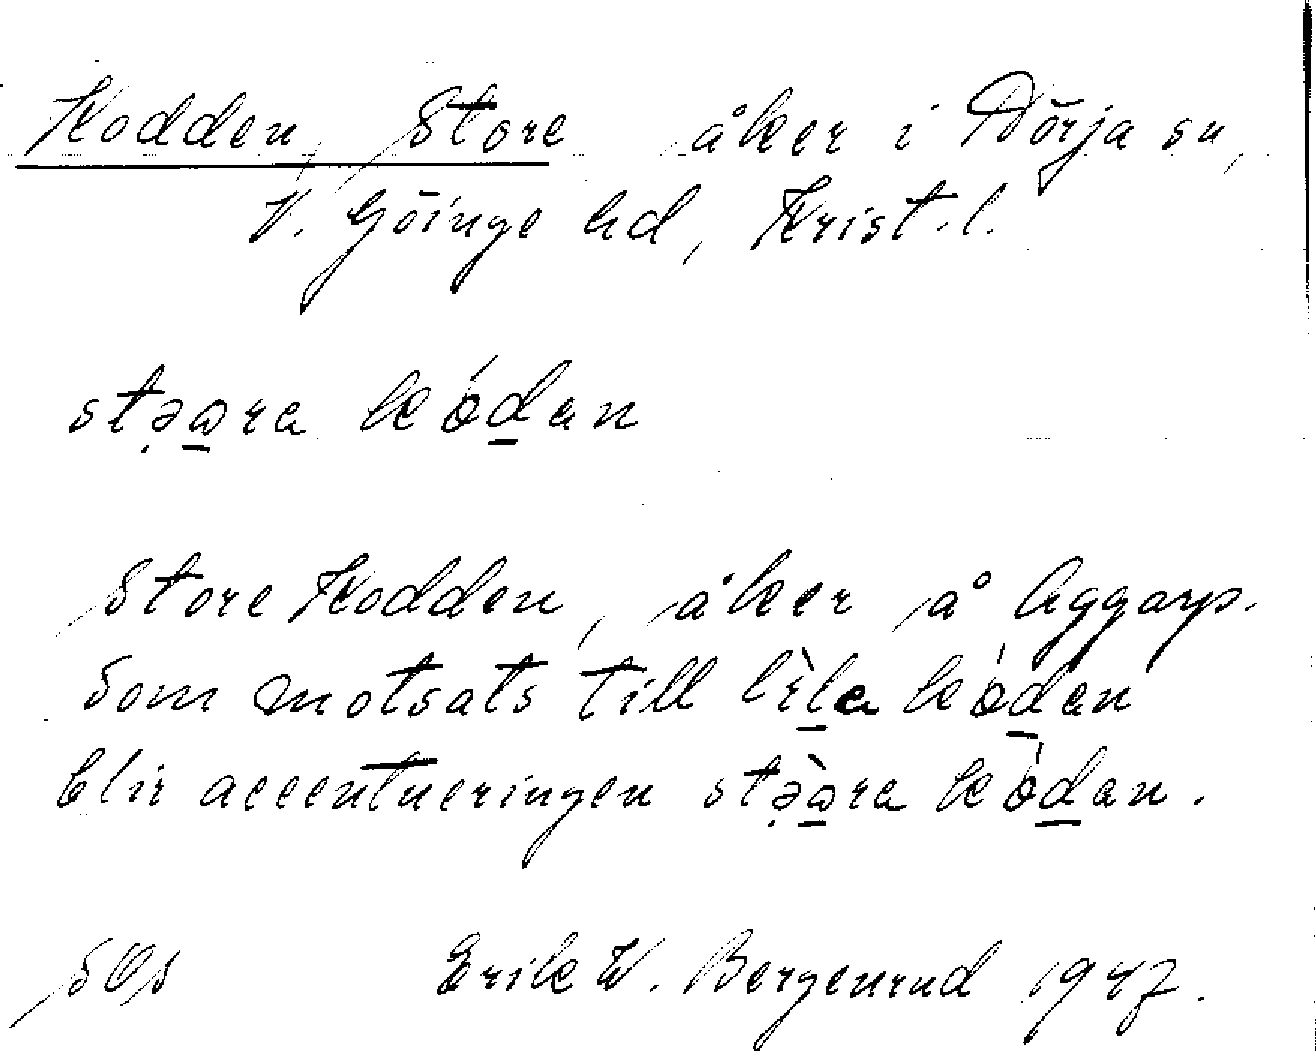 Kodden, Store åker i Nörja sn,
V. Göinge hd, Krist. l.
stəωra ködan
Store Kodden, åker å Aggarp.
Som motsats till lìla ködan
blir accentueringen stə̀ωra ködan.
Erik W. Bergenrud 1947.